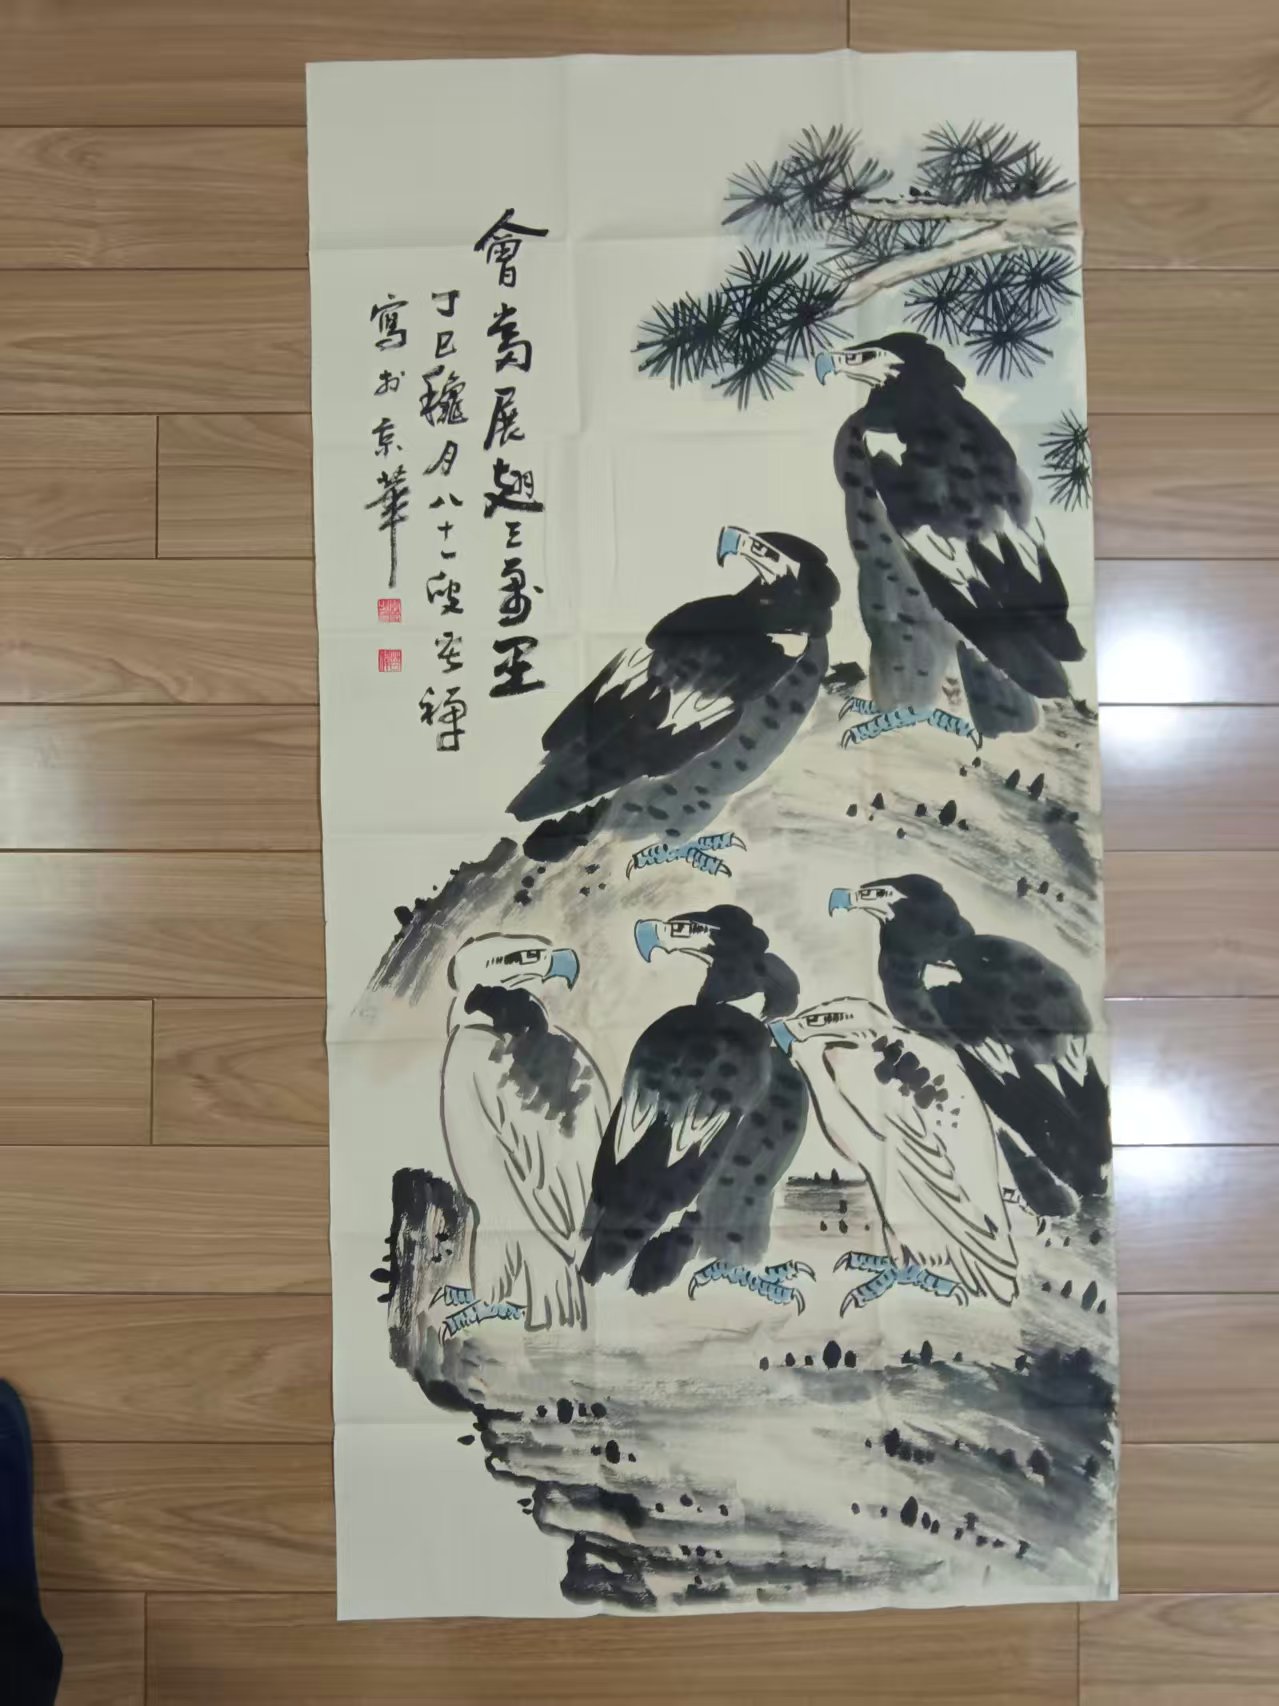 會當展翅三萬里
丁巳龝月八十一叟苦禪
寫於京華